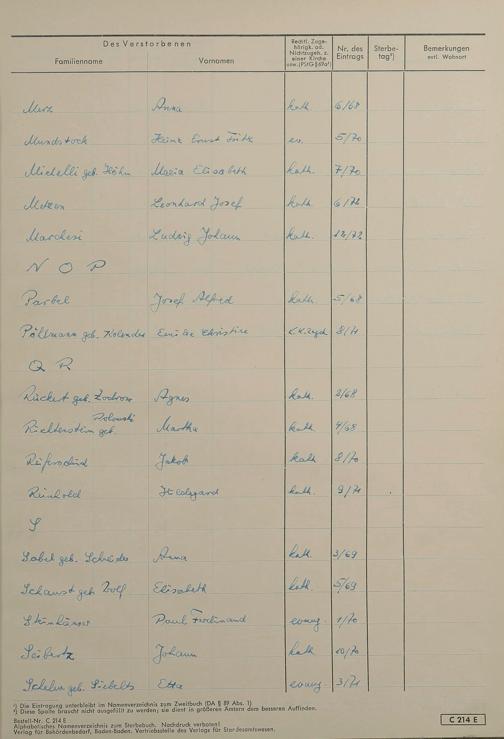 Des Verstorbenen
Familienname Vornamen Rechtl. Zuge-
hörigk. od.
Nichtzugeh. z.
einer Kirche
usw. (PStG § 69a¹) Nr. des
Eintrags Sterbe-
tag²) Bemerkungen
evtl. Wohnort
Merz Anna kath. 6/68
Mundstock Heinz Ernst Fritz ev. 5/70
Michelli geb. Höhn Maria Elisabeth kath. 7/70
Metzen Leonhard Josef kath. 6/72
Marchesi Ludwig Johann kath. 12/72
N O P
Parbel Josef Alfred kath. 5/68
Pöllmann geb. Kolender Christine 8/71
Q R
Rückert geb. Agnes kath. 2/68
Richtenstein geb. Martha kath. 4/68
Jakob kath. 8/70
Reinhold Hildegard kath. 9/71
S
Sabel geb. Schröder Anna kath. 3/69
Schaust geb. Wolf Elisabeth kath. 5/69
Steinhäuser Paul Ferdinand evang. 1/70
Seibertz Johann kath. 10/70
Schelm geb. Siebelts Etta evang. 3/71
¹) Die Eintragung unterbleibt im Namenverzeichnis zum Zweitbuch (DA § 89 Abs. 1)
²) Diese Spalte braucht nicht ausgefüllt zu werden; sie dient in größeren Ämtern dem besseren Auffinden.
Bestell-Nr. C 214 E
Alphabetisches Namenverzeichnis zum Sterbebuch. Nachdruck verboten!
Verlag für Behördenbedarf, Baden-Baden. Vertriebsstelle des Verlags für Standesamtswesen.
C 214 E